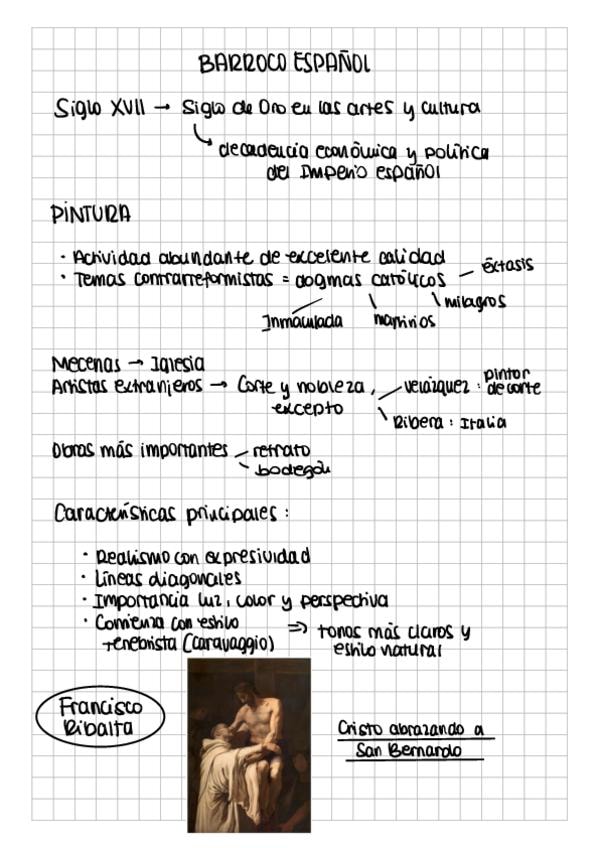 BARROCO ESPAÑOL
Siglo XVII → Siglo de Oro en las artes y cultura
decadencia económica y política
del Imperio español
PINTURA
· Actividad abundante de excelente calidad
· Temas contrarreformistas = dogmas católicos
éxtasis
milagros
Inmaculada martirios
Mecenas → Iglesia
Artistas extranjeros → Corte y nobleza,
excepto
Velázquez : pintor
de corte
Ribera : Italia
Obras más importantes
retrato
bodegón
Características principales :
· Realismo con expresividad
· Líneas diagonales
· Importancia luz, color y perspectiva
· Comienza con estilo
tenebrista (Caravaggio)
⇒ tonos más claros y
estilo natural
Francisco
Ribalta
Cristo abrazando a
San Bernardo